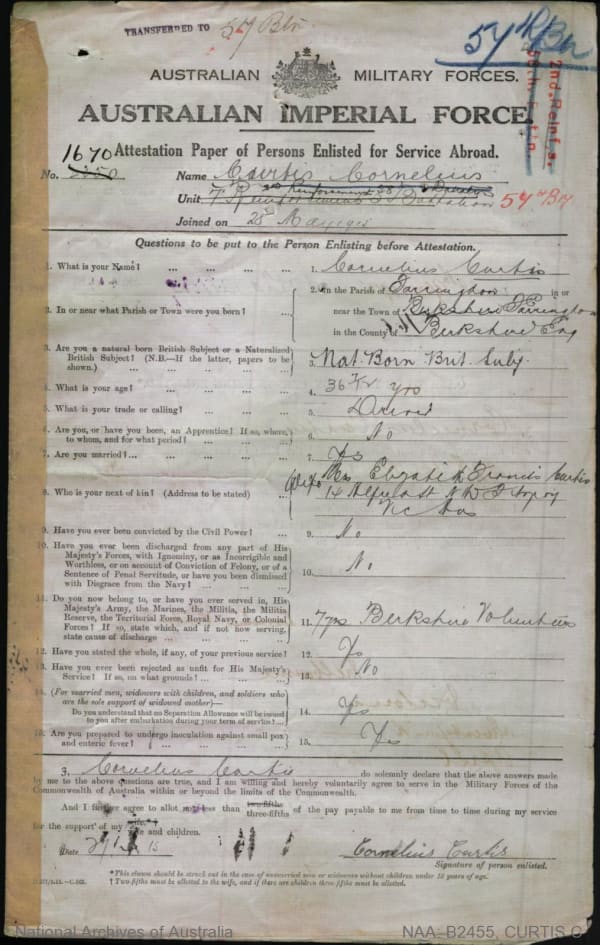 TRANSFERRED TO 57 Btn
57th Bn
2nd. Reinf's.
58th Battn.
AUSTRALIAN MILITARY FORCES.
AUSTRALIAN IMPERIAL FORCE.
Attestation Paper of Persons Enlisted for Service Abroad.
1670
No.
Name Curtis Cornelius
Unit 57th Bn
Joined on 28
Questions to be put to the Person Enlisting before Attestation.
1. What is your Name? ... 1. Cornelius Curtis
2. In or near what Parish or Town were you born? 2. In the Parish of Farringdon in or
near the Town of Berkshire Farringdon
in the County of Berkshire Eng
3. Are you a natural born British Subject or a Naturalized British Subject? (N.B.—If the latter, papers to be shown.) 3. Nat. Born Brit. Subj.
4. What is your age? 4. 36 yrs
5. What is your trade or calling? 5. Driver
6. Are you, or have you been, an Apprentice? If so, where, to whom, and for what period? 6. No
7. Are you married? 7. Yes
8. Who is your next of kin? (Address to be stated) (Wife) Mrs Elizabeth Francis Curtis
14
Victoria
9. Have you ever been convicted by the Civil Power? 9. No
10. Have you ever been discharged from any part of His
Majesty's Forces, with Ignominy, or as Incorrigible and
Worthless, or on account of Conviction of Felony, or of a
Sentence of Penal Servitude, or have you been dismissed
with Disgrace from the Navy? 10. No
11. Do you now belong to, or have you ever served in, His
Majesty's Army, the Marines, the Militia, the Militia
Reserve, the Territorial Force, Royal Navy, or Colonial
Forces? If so, state which, and if not now serving,
state cause of discharge 11. 7 yrs Berkshire Volunteers
12. Have you stated the whole, if any, of your previous service? 12. Yes
13. Have you ever been rejected as unfit for His Majesty's
Service? If so, on what grounds? 13. No
14. (For married men, widowers with children, and soldiers who
are the sole support of widowed mother)—
Do you understand that no Separation Allowance will be issued
to you after embarkation during your term of service? 14. Yes
15. Are you prepared to undergo inoculation against small pox
and enteric fever? 15. Yes
I, Cornelius Curtis do solemnly declare that the above answers made
by me to the above questions are true, and I am willing and hereby voluntarily agree to serve in the Military Forces of the
Commonwealth of Australia within or beyond the limits of the Commonwealth.
And I further agree to allot not less than two-fifths three-fifths of the pay payable to me from time to time during my service
for the support of my wife and children.
Date 15
Cornelius Curtis
Signature of person enlisted.
* This clause should be struck out in the case of unmarried men or widowers without children under 18 years of age.
† Two-fifths must be allotted to the wife, and if there are children three-fifths must be allotted.
National Archives of Australia
NAA: B2455, CURTIS C